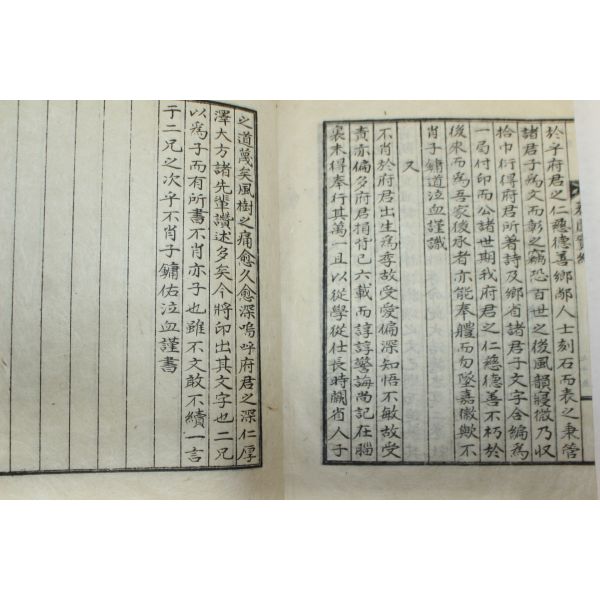 於乎府君之仁慈德善鄉鄰人士刻石而表之秉管
諸君子爲文而彰之竊恐百世之後風韻寢微乃収
拾巾衍得府君所著詩及鄉省諸君子文字合編爲
一局付印而公諸世期我府君之仁慈德善不朽於
後來而爲吾家後承者亦能奉軆而勿墜嘉徽歟不
肖子鏞道泣血謹識
又
不肖於府君出生爲季故受愛偏深知悟不敏故受
責亦偏多府君捐背已六載而諄諄警誨尚記在腦
裏未得奉行其萬一且以從學從仕長時闕省人子
之道萬矣風樹之痛愈久愈深嗚呼府君之深仁厚
澤大方諸先輩讚述多矣今將印出其文字也二兄
以爲子而有所書不肖亦子也雖不文敢不續一言
于二兄之次乎不肖子鏞佑泣血謹書